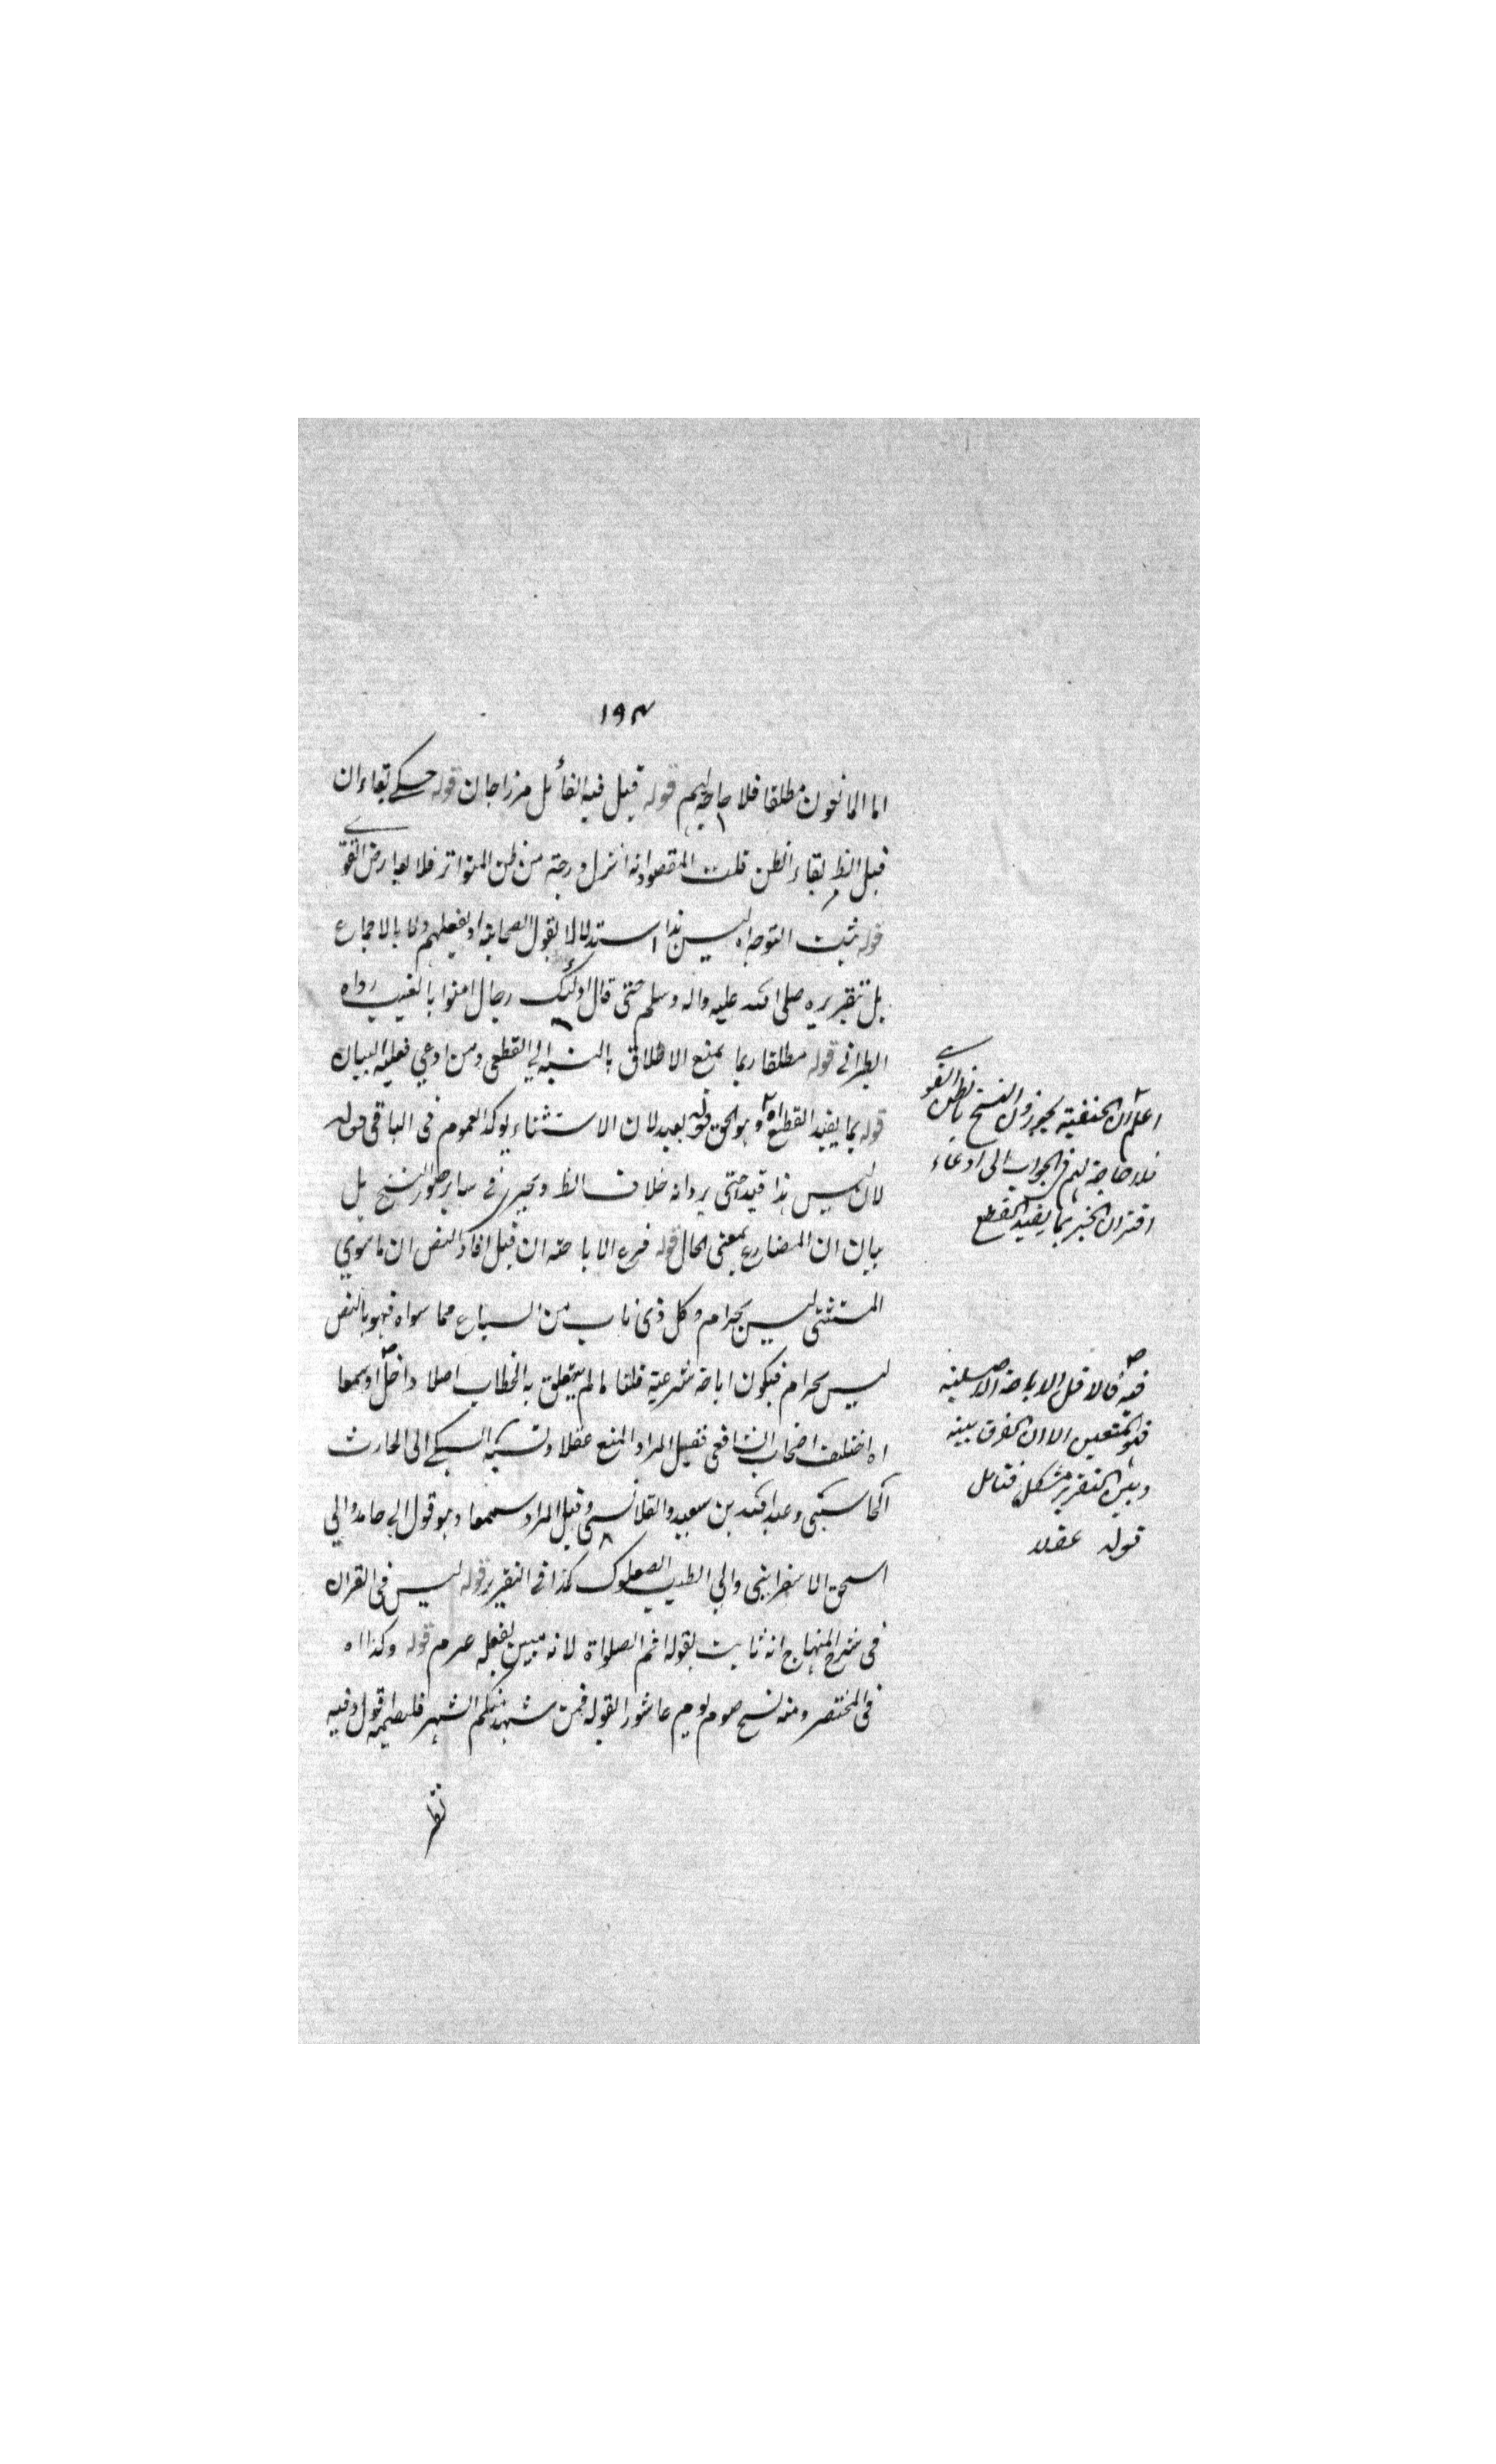 ١٩٣
اما المانعون مطلقا فلا حاجة لهم قوله قيل فيه القائل مرزاجان قوله بقاء ان
قيل الظ بقاء الظن قلت المقصود انه انزل درجة من ظن المتواتر فلا يعارض القوى
قوله ثبت التوجه اه ليس هذا استدلالا بقول الصحابة او بفعلهم ولا بالاجماع
بل بتقريره صلى الله عليه واله وسلم حتى قال اولئك رجال امنوا بالغيب رواه
الطبرانى قوله مطلقا ربما يمنع الاطلاق بالنسبة الى القطعى ومن ادعى فعليه البيان
قوله بما يفيد القطع اه وهو الحق قوله بعيد لان الاستثناء يوكد العموم فى الباقى قوله
لان ليس هذا قيد حتى يرد انه خلاف الظ ويجرى فى ساير صور النسخ بل
بيان ان المضارع بمعنى الحال قوله فرع الاباحة ان قيل افاد النص ان ما سوى
المستثنى ليس بحرام وكل ذى ناب من السباع مما سواه فهو بالنص
ليس بحرام فيكون اباحة شرعية قلنا ما لم يتعلق به الخطاب اصلا داخل او سمعا
اه اختلف اصحاب الشافعى فقيل المراد المنع عقلا ونسبه السبكى الى الحارث
المحاسبى وعبد الله بن سعيد والقلانسى وقيل المراد سمعا وهو قول ابى حامد وابى
اسحق الاسفراينى وابى الطيب الصعلوك كذا فى التقرير قوله ليس فى القران
فى شرح المنهاج انه ثابت بقوله اقم الصلواة لانه مبين بفعله عم قوله وكذا اه
فى المختصر ومنه نسخ صوم يوم عاشورا لقوله فمن شهد منكم الشهر فليصمه اقول وفيه
نظر
اعلم ان الحنفية يجوزون النسخ بالظن القوى
فلا حاجة لهم فى الجواب الى ادعاء
اقتران الخبر بما يفيد القطع
فيه قال قيل الاباحة الاصلية
فهو المتعين الا ان الفرق بينه
وبين التقرير مشكل فتامل
قوله عقلا